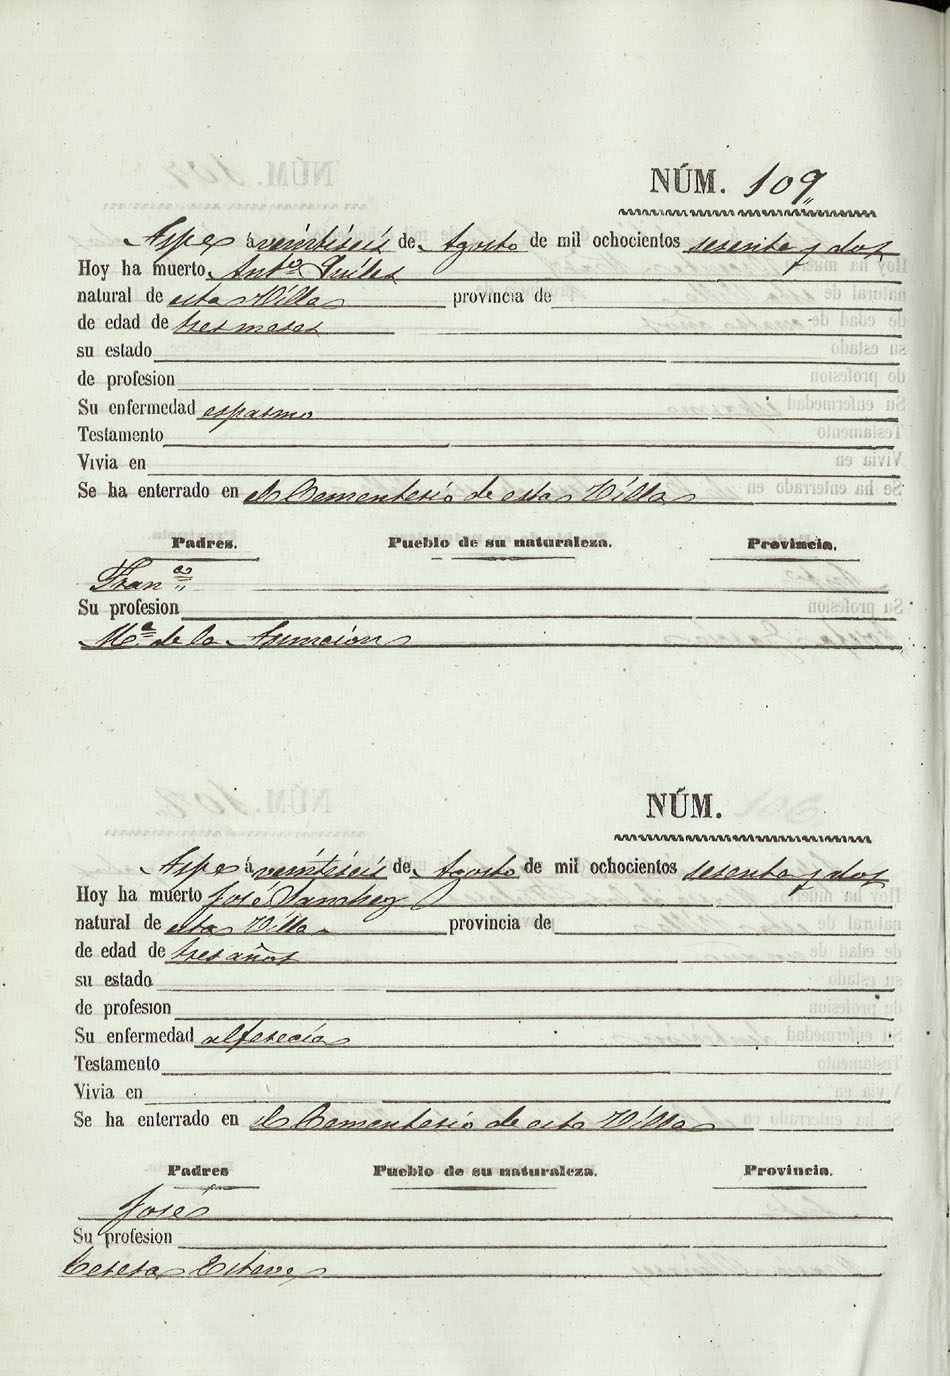 NÚM. 109
Aspe á veintiseis de Agosto de mil ochocientos sesenta y dos
Hoy ha muerto Ant.o Quiles
natural de esta Villa provincia de
de edad de tres meses
su estado
de profesion
Su enfermedad espasmo
Testamento
Vivia en
Se ha enterrado en el Cementerio de esta Villa
Padres. Pueblo de su naturaleza. Provincia.
Fran.co
Su profesion
M.a de la Asuncion
NÚM.
Aspe á veintiseis de Agosto de mil ochocientos sesenta y dos
Hoy ha muerto José Sanchez
natural de esta Villa provincia de
de edad de tres años
su estado
de profesion
Su enfermedad alferecia
Testamento
Vivia en
Se ha enterrado en el Cementerio de esta Villa
Padres Pueblo de su naturaleza. Provincia.
José
Su profesion
Teresa Esteve